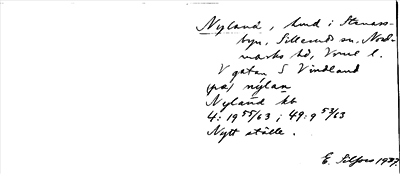 Nyland, hmd i Stenars-
byn, Sillerud sn. Nord-
marks hd, Vrml l.
V gatan S Vindland
(på) nýlan
Nyland kb
4: 19 55/63 ; 49: 9 53/63
Nytt ställe.
E. Tilfors 1937.